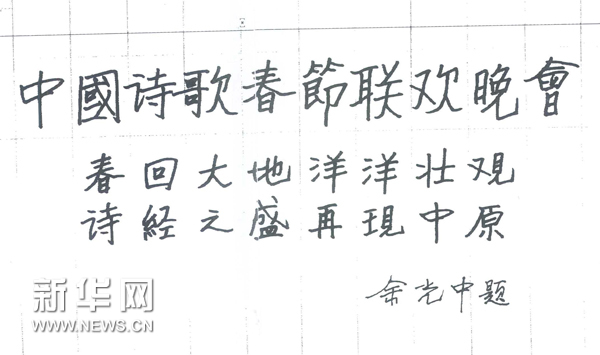 中國诗歌春節联欢晚會
春回大地洋洋壮观
诗経之盛再現中原
余光中題
新华网
WWW.NEWS.CN